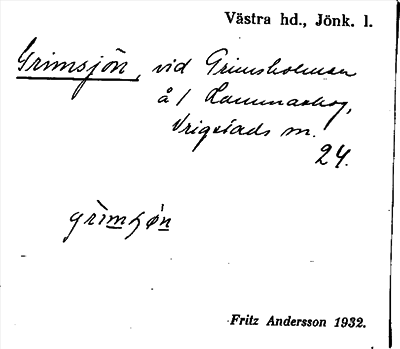 Västra hd., Jönk. l.
Grimsjön, vid Grimsholmen
å / Lammaskog,
Vrigstads m.
24.
grimʃön
Fritz Andersson 1932.